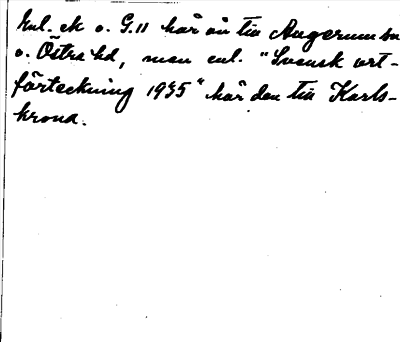 Enl. ek o. G.11 hör ön till Augerum sn
o. Östra hd, men enl. "Svensk ort-
förteckning 1935" hör den till Karls-
krona.